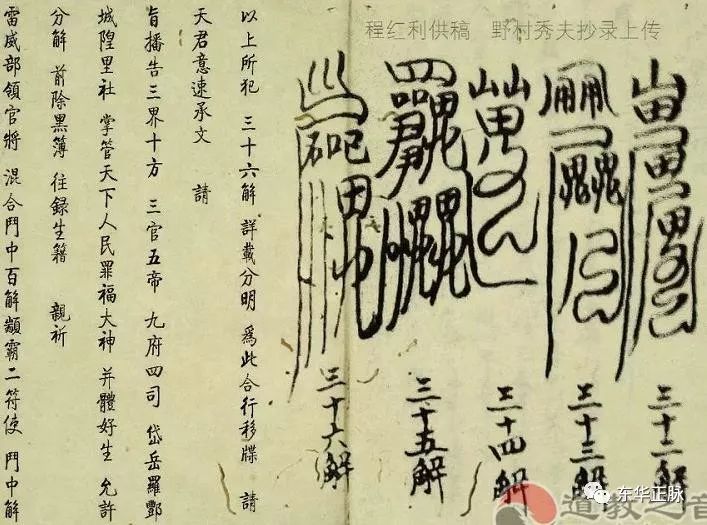 程红利供稿 野村秀夫抄录上传
三十二解
三十三解
三十四解
三十五解
三十六解
以上所犯 三十六解 詳載分明 爲此合行移牒 請
天君意速承文 請
旨播告三界十方 三官五帝 九府四司 岱岳羅酆
城隍里社 掌管天下人民罪福大神 并體好生 允許
分解 前除黑簿 往錄生籍 親祈
雷威部領官將 混合鬥中百解顓霸二符使 鬥中解
道教之音
东华正脉